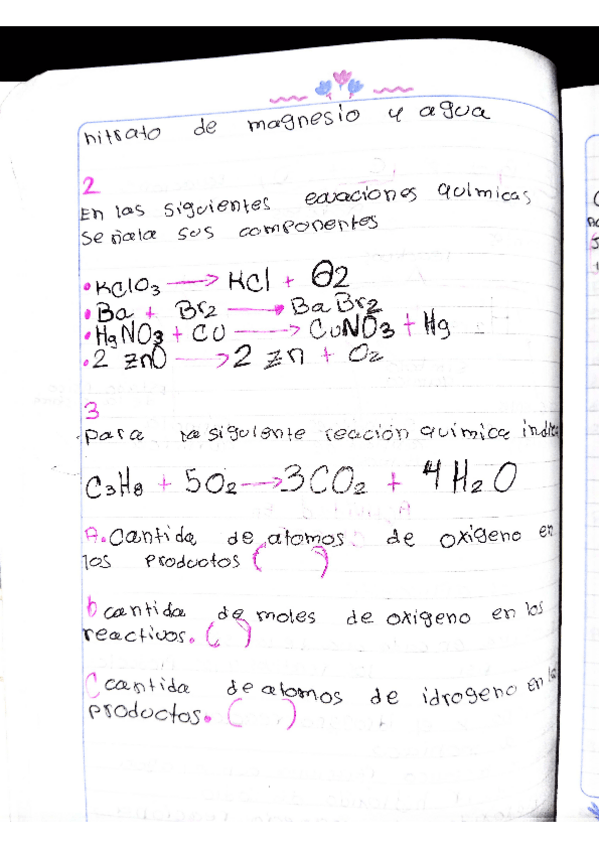 nitrato de magnesio y agua
2
En las siguientes ecuaciones químicas
señala sus componentes
• KClO3 → KCl + O2
• Ba + Br2 → BaBr2
• HgNO3 + CU → CUNO3 + Hg
• 2 znO → 2 zn + O2
3
para la siguiente reacción química
C3H8 + 5O2 → 3CO2 + 4H2O
A. Cantida de atomos de oxigeno en
los productos ( )
b cantida de moles de oxigeno en los
reactivos. ( )
C cantida de atomos de idrogeno en
productos. ( )